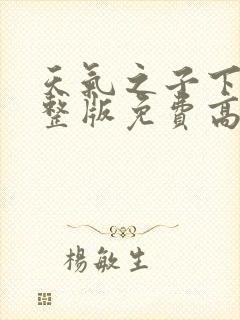 天氣之子下
整版免費高
楊敏生